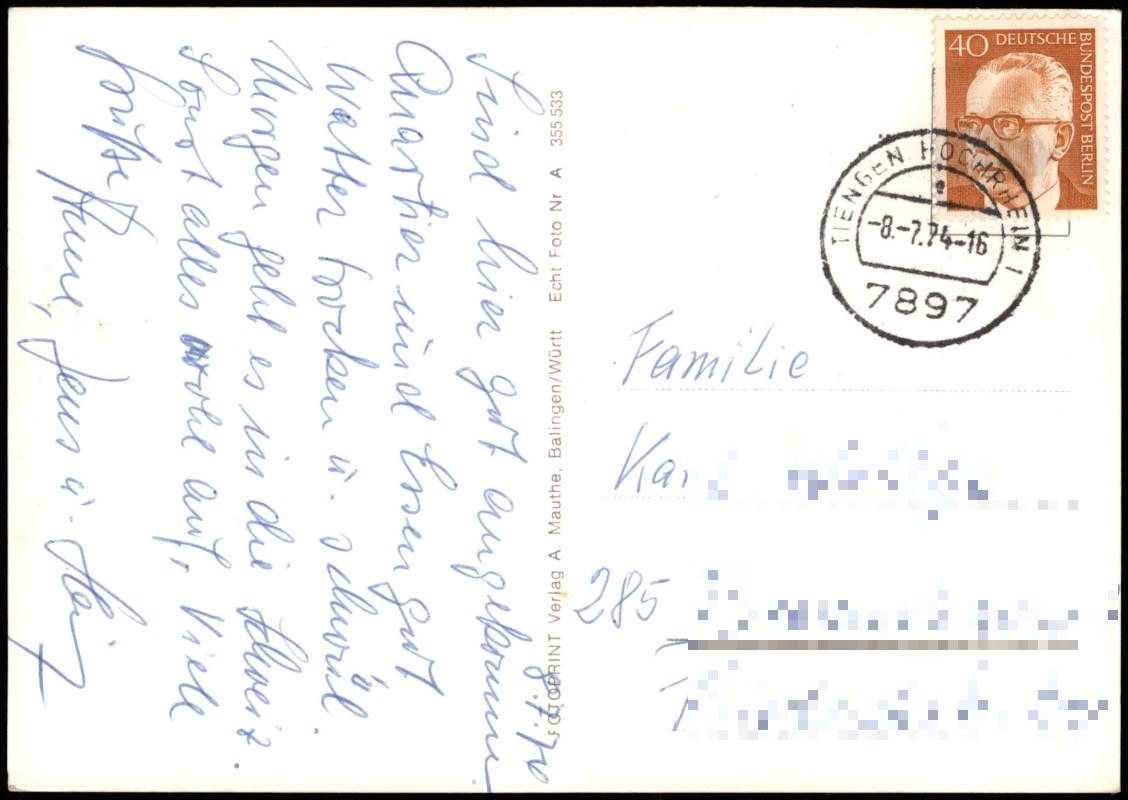 8.7.74
Sind hier gut angekommen
Quartier und Essen gut
Watter trocken u. schwül.
Morgen geht es in die Schweiz.
Sonst alles wohl auf, Viele
Grüße Anne, Jens u. Heinz
FOTOPRINT Verlag A. Mauthe, Balingen/Württ Echt Foto Nr A 355 533
40 DEUTSCHE BUNDESPOST BERLIN
TIENGEN, HOCHRHEIN 1
-8.-7.74-16
7897
Familie
285